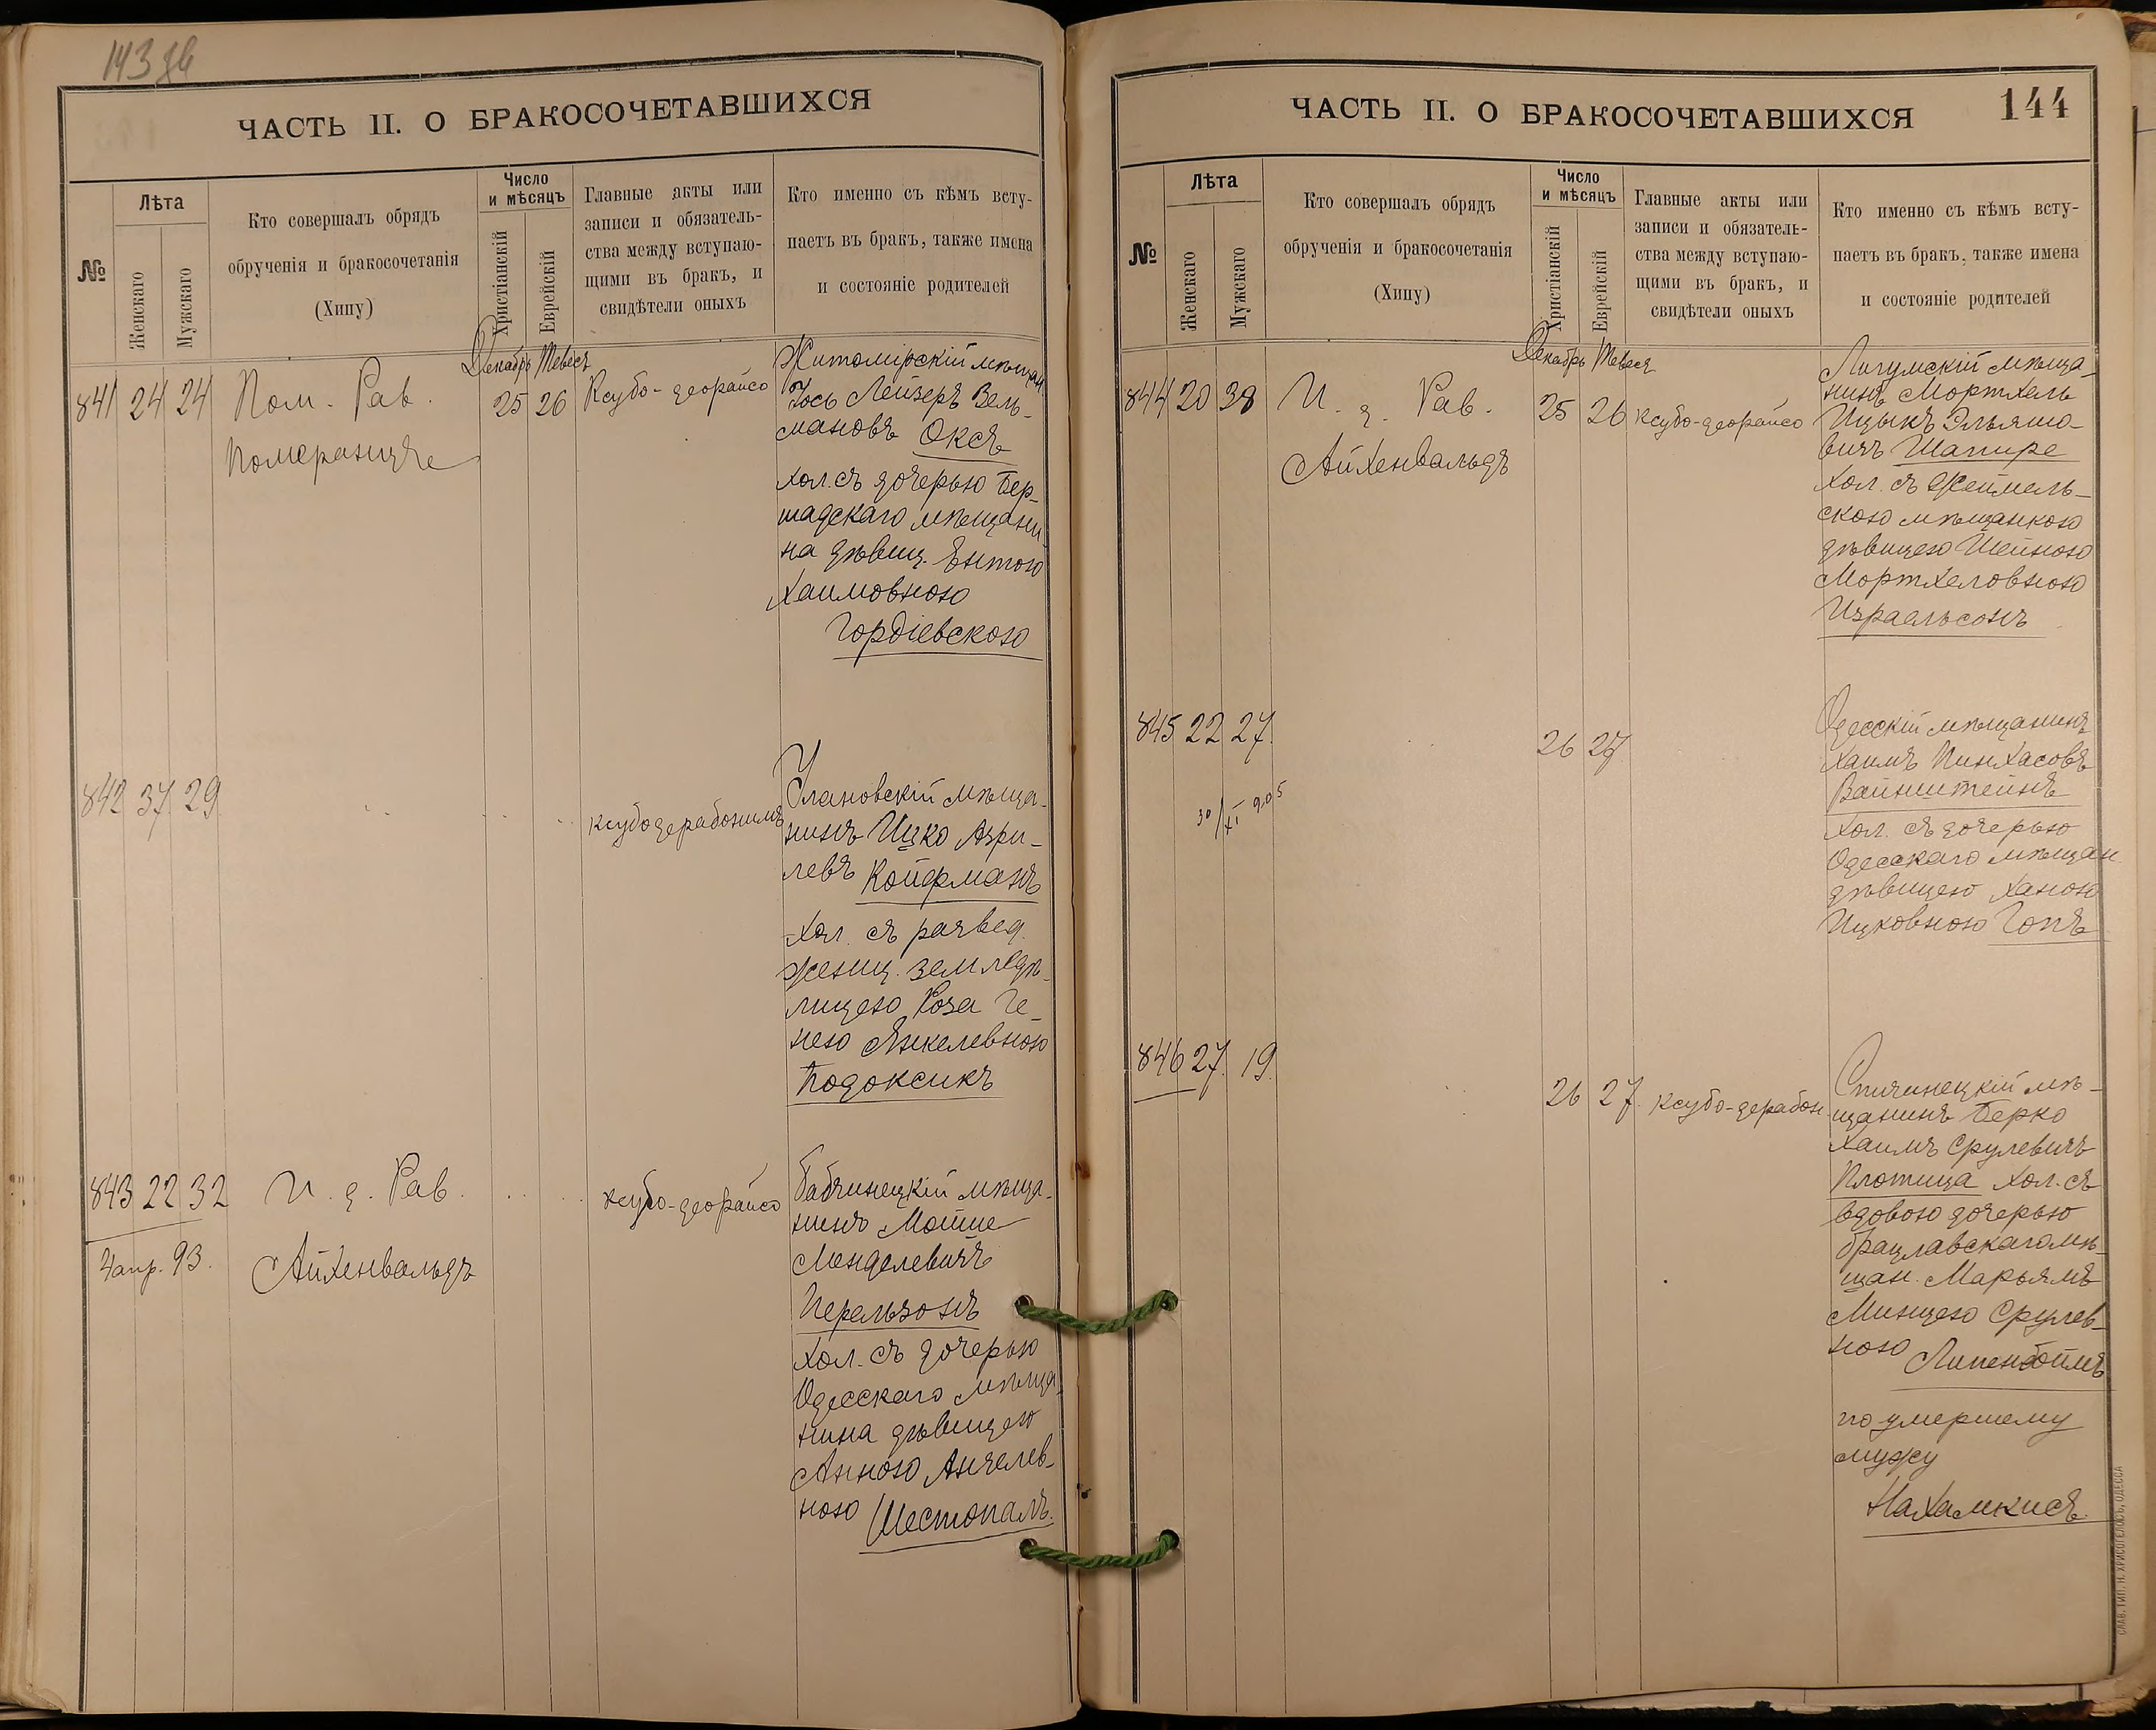 143 об
ЧАСТЬ II. О БРАКОСОЧЕТАВШИХСЯ
№
Лѣта
Женскаго
Мужскаго
Кто совершалъ обрядъ
обрученія и бракосочетанія
(Хипу)
Число
и мѣсяцъ
Христіанскій
Еврейскій
Главные акты или
записи и обязатель-
ства между вступаю-
щими въ бракъ, и
свидѣтели оныхъ
Кто именно съ кѣмъ всту-
паетъ въ бракъ, также имена
и состояніе родителей
Декабрь Тевесъ
841 24 24 Пом. Рав. 25 26 Ксубо-деорайсо
Померанцъ
Житомірскій мѣщан.
Іось Лейзеръ Зель-
мановъ Оксъ
хол. съ дочерью Бер-
шадскаго мѣщани-
на дѣвиц. Ентою
Хаимовною
Гордіевскою
842 37 29 ксубодерабонимъ
Улановскій мѣща-
нинъ Ицко Азри-
левъ Койфманъ
хол. съ развед.
женщ. землед-
лицею Роза Ге-
нею Янкелевною
Подоксикъ
843 22 32 И. д. Рав. ксубо-деорайсо
4 апр. 93. Айхенвальдъ
Бабчинецкій мѣща-
нинъ Мойше
Менделевичъ
Перельзонъ
хол. съ дочерью
Одесскаго мѣща-
нина дѣвицею
Анною Анчелев-
ною Шестопалъ.
144
ЧАСТЬ II. О БРАКОСОЧЕТАВШИХСЯ
№
Лѣта
Женскаго
Мужскаго
Кто совершалъ обрядъ
обрученія и бракосочетанія
(Хипу)
Число
и мѣсяцъ
Христіанскій
Еврейскій
Главные акты или
записи и обязатель-
ства между вступаю-
щими въ бракъ, и
свидѣтели оныхъ
Кто именно съ кѣмъ всту-
паетъ въ бракъ, также имена
и состояніе родителей
Декабрь Тевесъ
844 20 38 И. д. Рав. 25 26 ксубо-деорайсо
Айхенвальдъ
Лигумскій мѣща-
нинъ Мортхель
Ицыкъ Эльяшо-
вичъ Шапире
хол. съ Жеймель-
скою мѣщанкою
дѣвицею Шейною
Мортхеловною
Израельсонъ
845 22 27. 26 27
30/XI 905
Одесскій мѣщанинъ
Хаимъ Пинхасовъ
Вайнштейнъ
хол. съ дочерью
Одесскаго мѣщан.
дѣвицею Ханою
Ицковною Гопъ
846 27. 19. 26 27. ксубо-дерабон.
Спичинецкій мѣ-
щанинъ Берко
Хаимъ Срулевичъ
Плотица хол. съ
вдовою дочерью
Брацлавскаго мѣ-
щан. Марьямъ
Минцею Срулев-
ною Липенбоймъ
по умершему
мужу
Нахамкисъ.
СЛАВ. ТИП. Н. ХРИСОГЕЛОСЪ, ОДЕССА